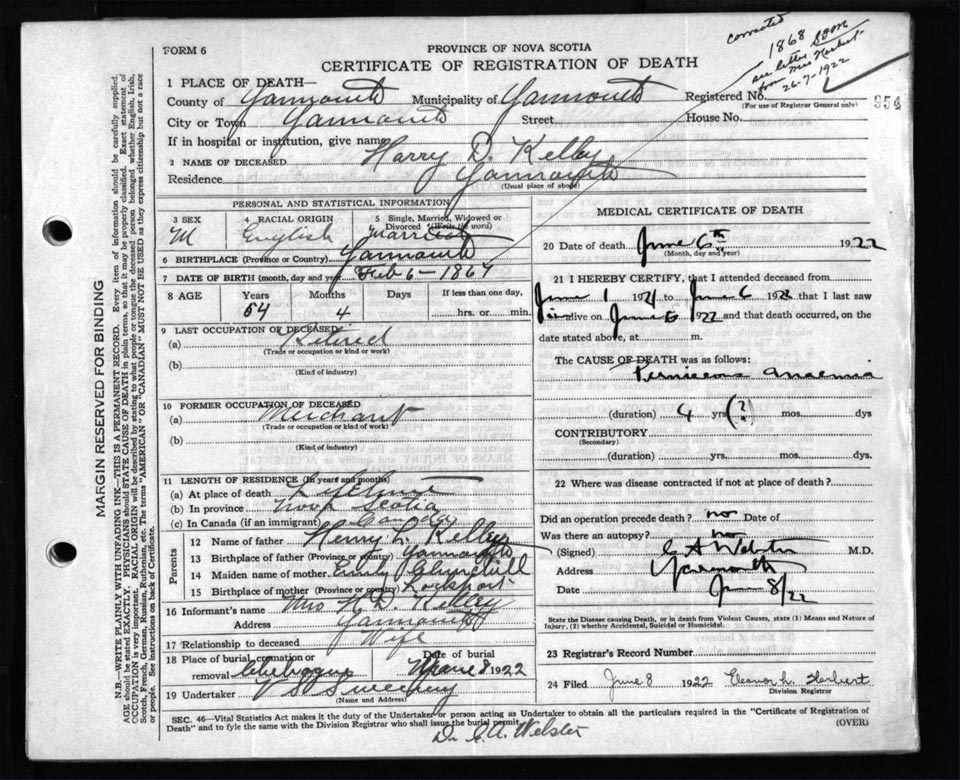 corrected
1868 
see letter
from Mrs Herbert
26-7-1922
FORM 6
PROVINCE OF NOVA SCOTIA
CERTIFICATE OF REGISTRATION OF DEATH
1 PLACE OF DEATH—
County of Yarmouth Municipality of Yarmouth Registered No.
(For use of Registrar General only) 954
City or Town Yarmouth Street House No.
If in hospital or institution, give name
2 NAME OF DECEASED Harry D. Kelley
Residence Yarmouth
(Usual place of abode)
PERSONAL AND STATISTICAL INFORMATION
3 SEX M
4 RACIAL ORIGIN English
5 Single, Married, Widowed or Divorced (Write the word) Married
6 BIRTHPLACE (Province or Country) Yarmouth
7 DATE OF BIRTH (month, day and year) Feb 6 – 1867
8 AGE Years Months Days If less than one day,
54 4 hrs. or min.
9 LAST OCCUPATION OF DECEASED
(a) Retired
(Trade or occupation or kind or work)
(b)
(Kind of industry)
10 FORMER OCCUPATION OF DECEASED
(a) Merchant
(Trade or occupation or kind or work)
(b)
(Kind of industry)
11 LENGTH OF RESIDENCE (In years and months)
(a) At place of death Lifetime
(b) In province Nova Scotia
(c) In Canada (if an immigrant) Canada
Parents
12 Name of father Henry D. Kelley
13 Birthplace of father (Province or country) Yarmouth
14 Maiden name of mother Emily Churchill
15 Birthplace of mother (Province or country) Lockeport
16 Informant's name Mrs H. D. Kelley
Address Yarmouth
17 Relationship to deceased Wife
18 Place of burial, cremation or removal Chebogue Date of burial June 8 1922
19 Undertaker V S Sweeny
(Name and Address)
MEDICAL CERTIFICATE OF DEATH
20 Date of death June 6th 1922
(Month, day and year)
21 I HEREBY CERTIFY, that I attended deceased from
June 1 1921 to June 6 1922 that I last saw
him alive on June 6 1922 and that death occurred, on the
date stated above, at m.
The CAUSE OF DEATH was as follows:
Pernicious Anaemia
(duration) 4 yrs (?) mos. dys
CONTRIBUTORY
(Secondary)
(duration) yrs. mos. dys.
22 Where was disease contracted if not at place of death?
Did an operation precede death? no Date of
Was there an autopsy? no
(Signed) C A Webster M.D.
Address Yarmouth
Date June 8/22
State the Disease causing Death, or in death from Violent Causes, state (1) Means and Nature of
Injury, (2) whether Accidental, Suicidal or Homicidal.
23 Registrar's Record Number
24 Filed June 8 1922 Eleanor L. Herbert
Division Registrar
SEC. 46—Vital Statistics Act makes it duty of the Undertaker or person acting as Undertaker to obtain all the particulars required in the "Certificate of Registration of
Death" and to fyle the same with the Division Registrar who shall issue the burial permit. (OVER)
Dr C.A. Webster
MARGIN RESERVED FOR BINDING
N.B.—WRITE PLAINLY WITH UNFADING INK—THIS IS A PERMANENT RECORD. Every item of information should be carefully supplied.
AGE should be stated EXACTLY. PHYSICIANS should STATE CAUSE OF DEATH in plain terms, so that it may be properly classified. Exact statement of
OCCUPATION is very important. RACIAL ORIGIN will be described by stating to what people or tongue the deceased person belonged whether English, Irish,
Scotch, French, German, Russian, Ruthenian, etc. The terms "AMERICAN" OR "CANADIAN" MUST NOT BE USED as they express citizenship but not a race
or people. See instructions on back of Certificate.